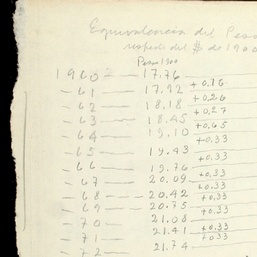 Equivalencia del Peso
respecto del $ de 1900
Pesos 1900
1960 — 17.76
— 61 — 17.92 +0.16
— 62 — 18.18 +0.26
— 63 — 18.45 +0.27
— 64 — 19.10 +0.65
— 65 — 19.43 +0.33
— 66 — 19.76 +0.33
— 67 — 20.09 +0.33
— 68 — 20.42 +0.33
— 69 — 20.75 +0.33
— 70 — 21.08 +0.33
— 71 — 21.41 +0.33
— 72 — 21.74 +0.33